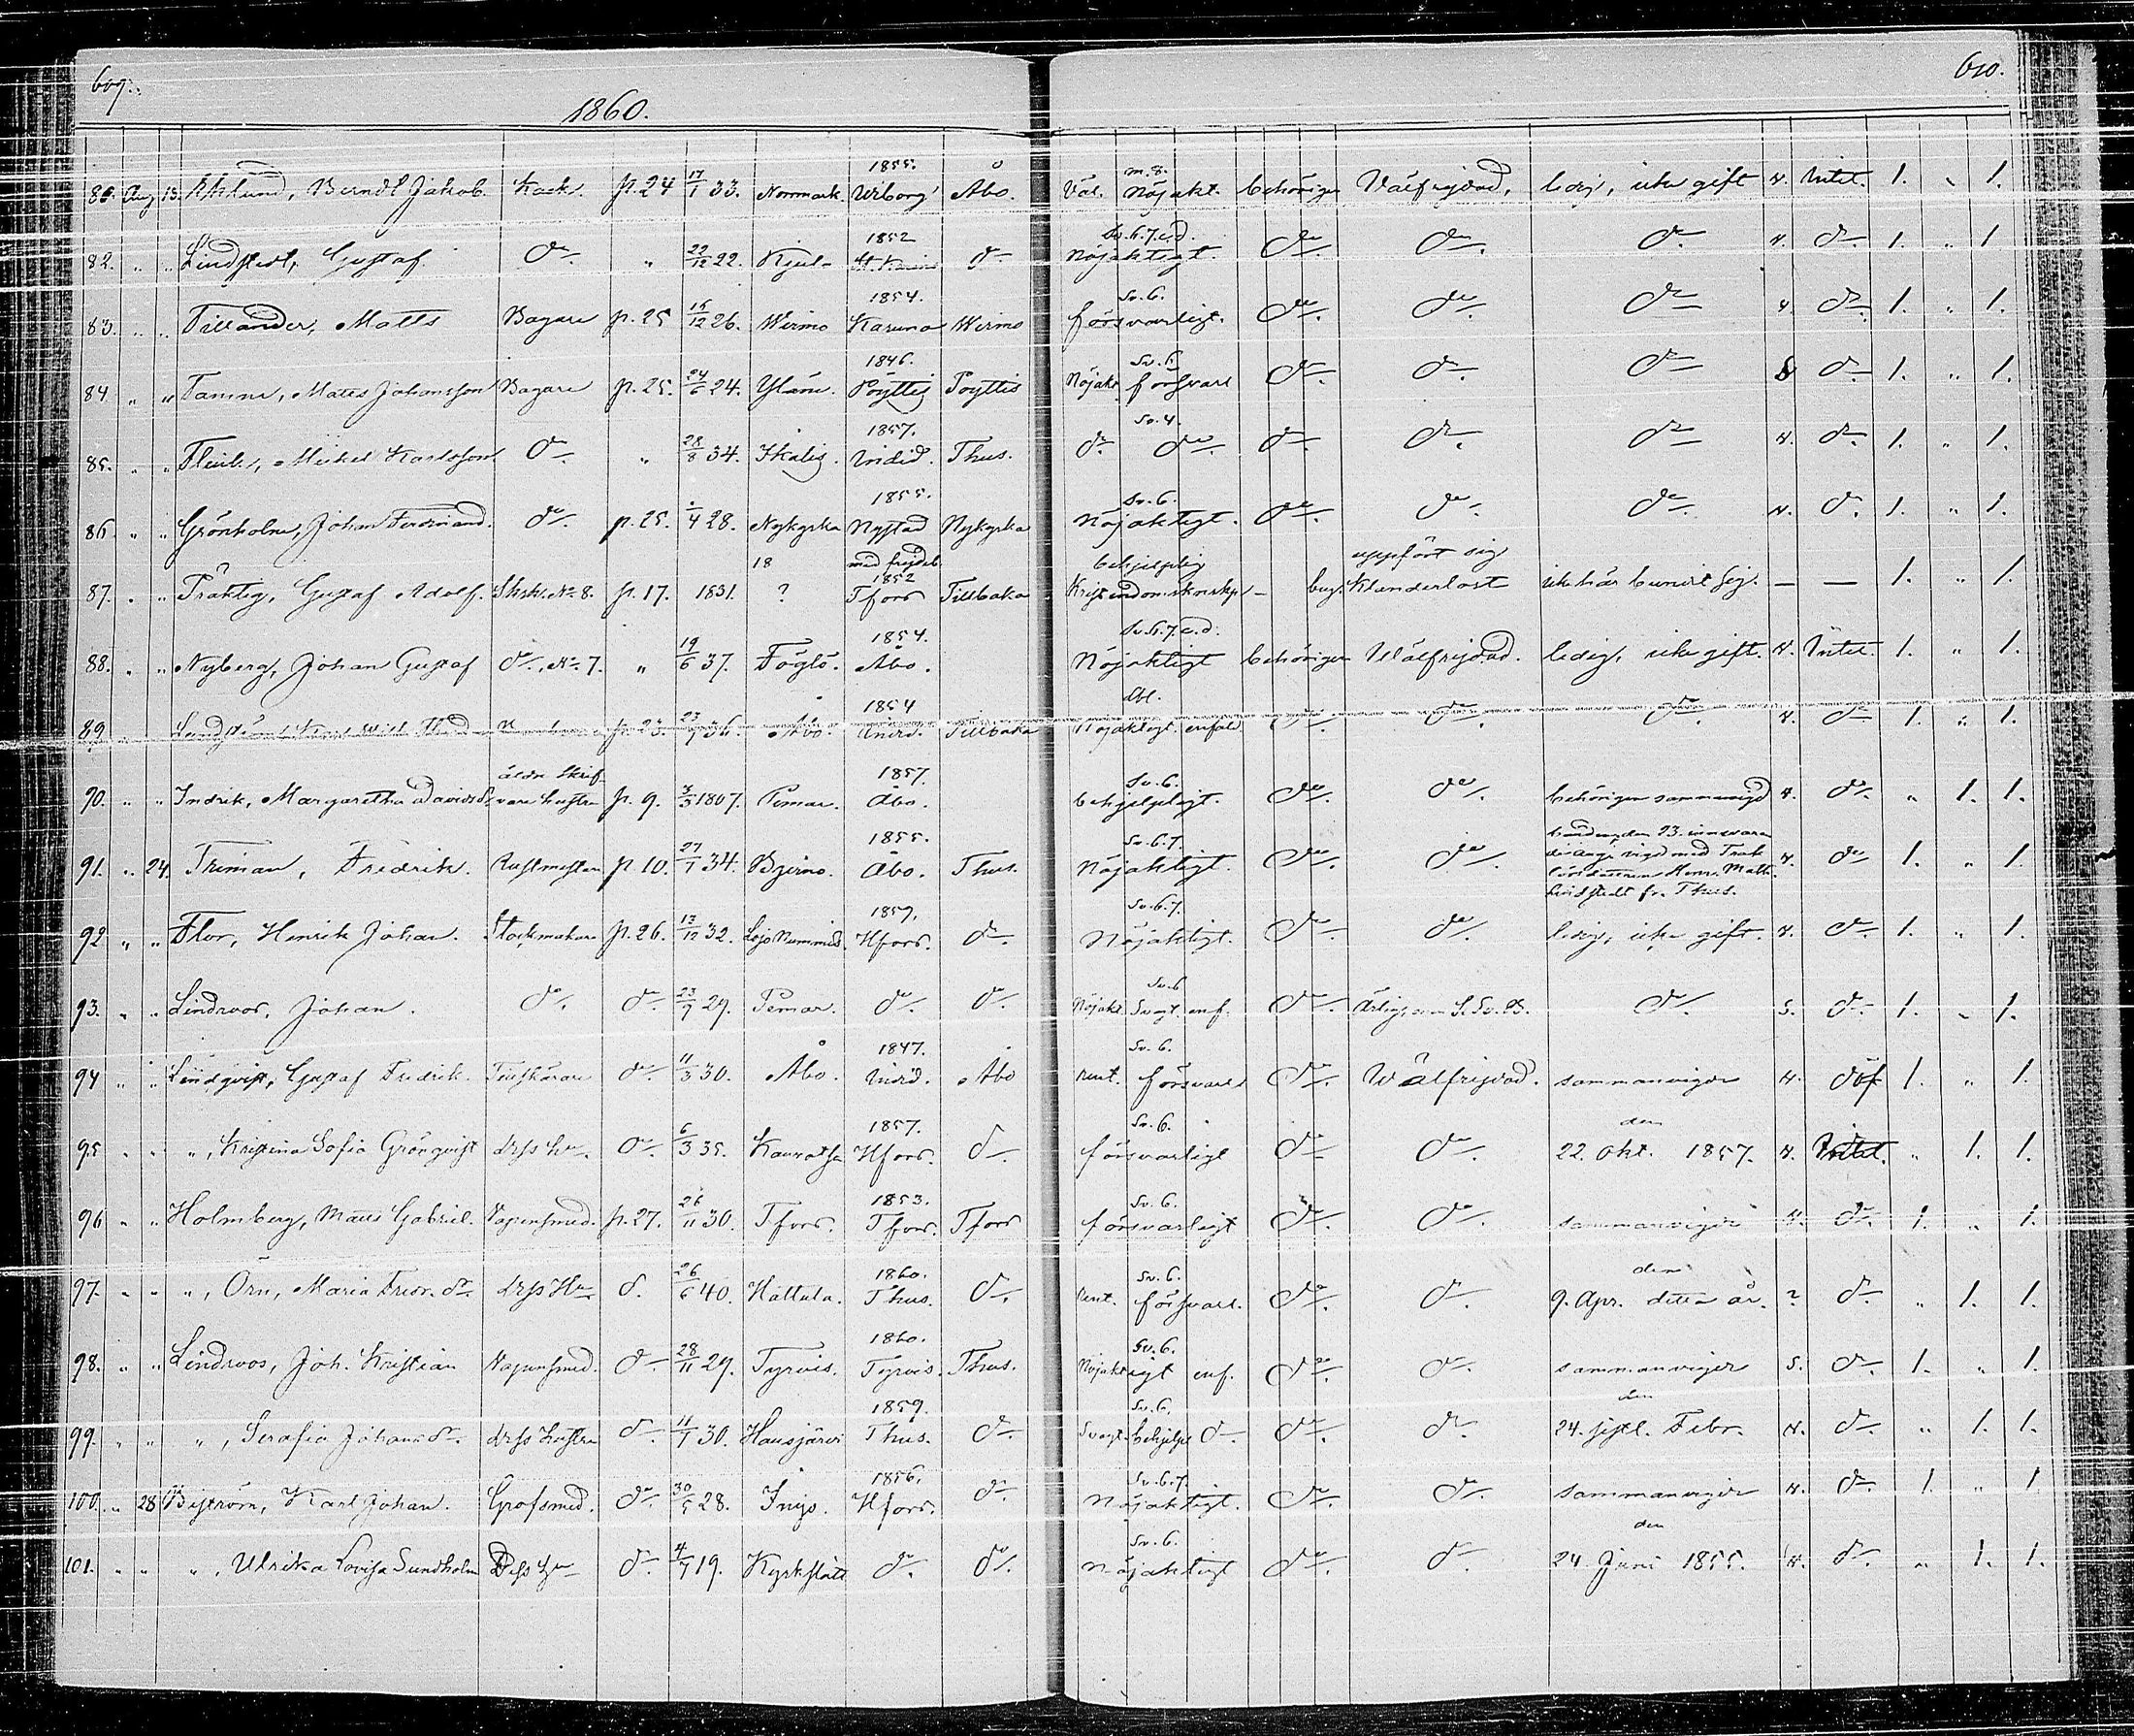 609.
610.
1860.
Aug 13. Berndt Jakob. Kock. p. 24 17/1 33. Norrmark. 1855. Wiborg Åbo. Väl. Nöjakt. behörigen Välfrejdad, ledig, icke gift v. Intet. 1. " 1.
82. " " Lindstedt, Gustaf. do. " 22/12 22. 1852 do. Sv. 6. 7. c. d. Nöjaktigt. do. do. do. v. do. 1. " 1
83. " " Tillander, Matts Bagare p. 25 15/12 26. Wirmo 1854. Karuna Wirmo Sv. 6. försvarligt. do. do. do. v. do. 1. " 1.
84 " " Tamine, Matts Johansson Bagare p. 25. 24/6 24. Yläne. 1846. Pöyttis Pöyttis Sv. 6 Nöjakt. försvarl do. do. do. do. 1. " 1.
85. " " Mickel Karlsson. do. " 28/8 34. Ikalis. 1857. Thus. Sv. 4. do. do. do. do. do. v. do. 1. " 1.
86. " " Grönholm, Johan Ferdinand. do. p. 25. /4 28. Nykyrka 1855. Nystad Nykyrka Sv. 6. Nöjaktigt. do. do. do. v. do. 1. " 1.
87. " " Präktig, Gustaf Adolf. No 8. p. 17. 18 1831. ? med frejdeb. 1852 Tfors Tillbaka behjelplig Kristendomskunskp - uppfört sig Klanderlöst icke här bunnit sig. — — 1. " 1.
88. " " Nyberg, Johan Gustaf do, No 7. " 19/6 37. Föglö. 1854. Åbo. Sv. 6. 7. c. d. Nöjaktigt behörigen Wälfrejdad. ledig, icke gift. v. Intet. 1. " 1.
89 p. 23. 36. Åbo. 1854 Tillbaka Nöjaktigt enfald do. do. do. v. do 1. " 1.
90. " " Indrik, Margaretha Davidsd. äldre Skrifvare hustru p. 9. 3/3 1807. Pemar. 1857. Åbo. Sv. 6. behjelpligt. do. do. behörigen sammanvigd v. do. " 1. 1.
91. " 24. Triman, Fredrik. Rustmästare p. 10. 27/1 34. Bjerno. 1855. Åbo. Thus. Sv. 6. 7. Nöjaktigt. do. do. v. do 1. " 1.
Lindstedt fr. Thus.
92 " " Flor, Henrik Johan. Stockmakare p. 26. 13/12 32. Lojo Nummis. 1859. Hfors. do. Sv. 6. 7. Nöjaktigt. do. do. ledig, icke gift. v. do. 1. " 1.
93. " " Lindroos, Johan. do. do. 23/9 29. Pemar. do. do. Sv. 6 Nöjakt. Svagt. enf. do. do. 5. do. 1. " 1.
94 " " Lindqvist, Gustaf Fredrik. do. 11/3 30. Åbo. 1847. Åbo Sv. 6. rent. försvarl do. Wälfrejdad. sammanvigde v. döf 1. " 1.
95 " " ", Kristina Sofia Grönqvist dess hu. do. 6/3 35. 1857. Hfors. do. Sv. 6. försvarligt do. do. den 22. Okt. 1857. v. Intet. " 1. 1.
96 " " Holmberg, Matts Gabriel. Vapensmed. p. 27. 26/11 30. Tfors. 1853. Tfors. Tfors Sv. 6. försvarligt do. do. sammanvigde v. do. 1. " 1.
97. " " ", Örn, Maria Fredr. dr. dess Hu. do. 26/6 40. Hattula. 1860. Thus. do. Sv. 6. rent. försvarl. do. do. den 9. Apr. detta år. ? do. " 1. 1.
98. " " Lindroos, Joh. Kristian Vapensmed. do. 28/11 29. Tyrvis. 1860. Tyrvis. Thus. Sv. 6. Nöjaktigt enf. do. do. sammanvigde 5. do. 1. " 1.
99. " " ", Serafia Johans dr. dess hustru do. 11/1 30. Hausjärvi 1859. Thus. do. Sv. 6. Svagt. behjelpl do. do. do. den 24. sistl. Febr. v. do. " 1. 1.
100. " 28 Biström, Karl Johan. Grofsmed. do. 30/5 28. Inijo. 1856. Hfors. do. Sv. 6. 7. Nöjaktigt. do. do. sammanvigde v. do. 1. " 1
101. " " ", Ulrika Lovisa Sundholm Dess hu do. 4/7 19. Kyrkslätt do. do. Sv. 6. Nöjaktigt do. do. den 24 Juni 1855. v. do. " 1. 1.